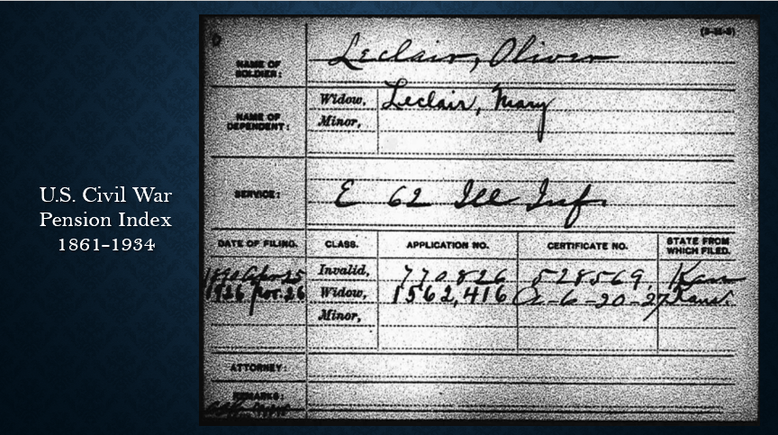 U.S. Civil War
Pension Index
1861-1934
(3-35-8)
NAME OF
SOLDIER:
Leclair, Oliver
NAME OF
DEPENDENT:
Widow, Leclair, Mary
Minor,
SERVICE:
E 62 Ill Inf.
DATE OF FILING. CLASS. APPLICATION NO. CERTIFICATE NO. STATE FROM
WHICH FILED.
1890 Apr 25 Invalid, 770826 528569. Kan
1926 Nov. 26 Widow, 1562,416 6-20-27 Kans.
Minor,
ATTORNEY:
REMARKS: